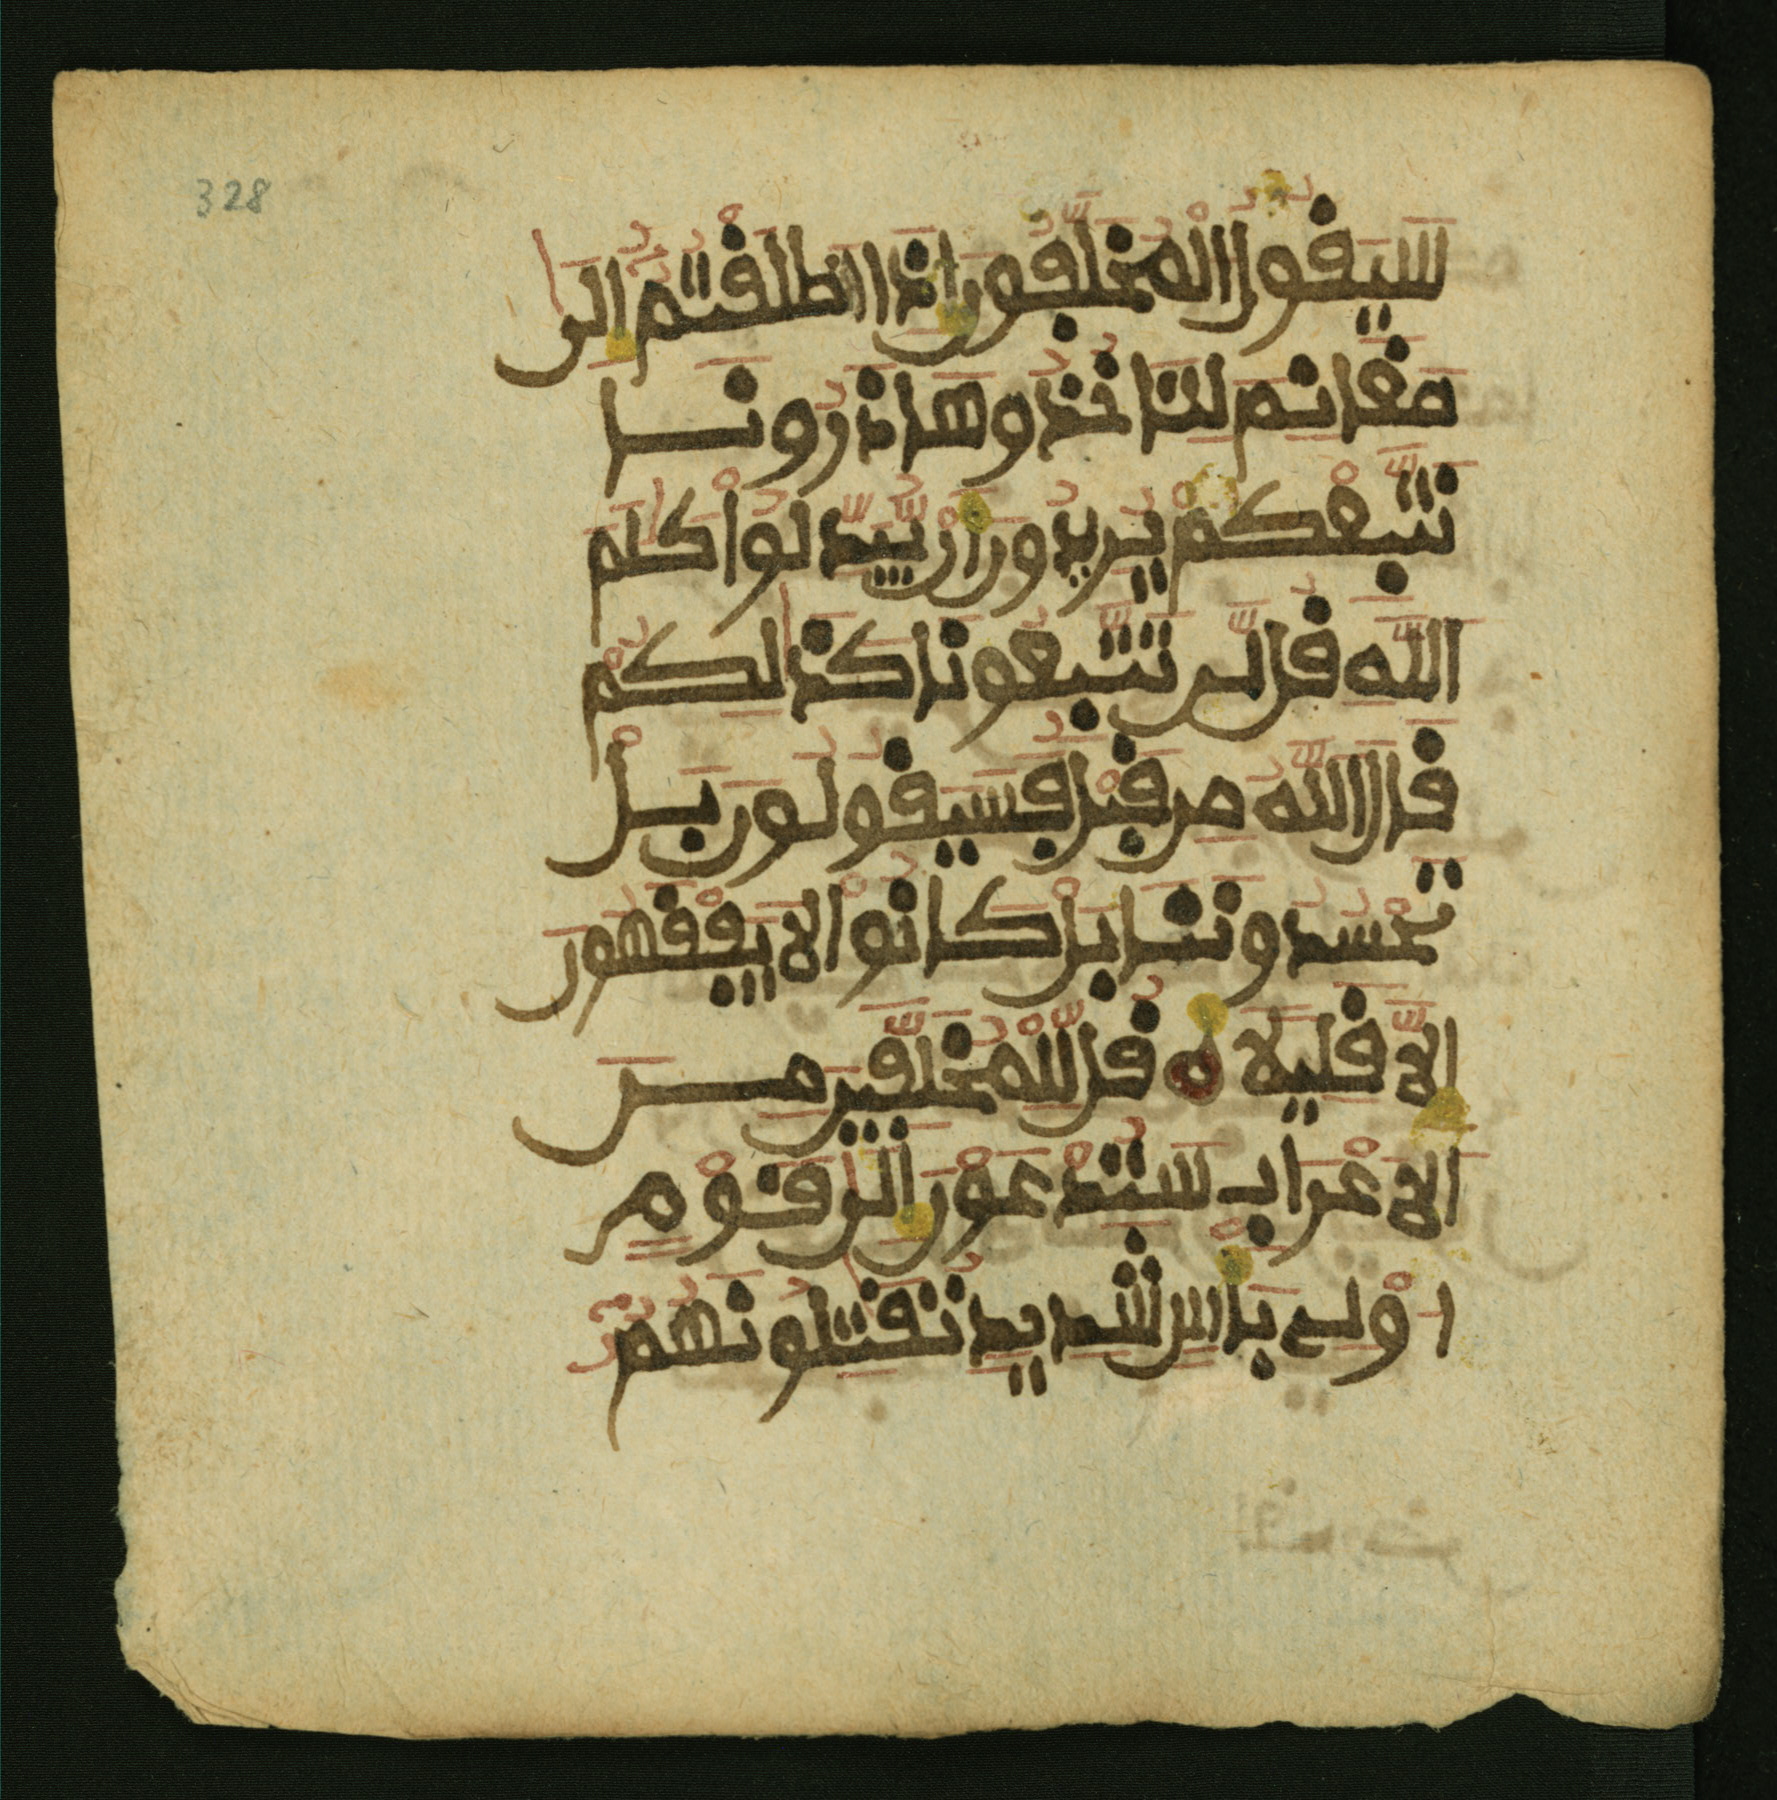 328
سَيَقُولُ الْمُخَلَّفُونَ إِذَا انطَلَقْتُمُ إِلَىٰ
مَغَانِمَ لِتَاخُذُوهَا ذَرُونَا
نَتَّبِعْكُمْ يُرِيدُونَ أَنْ يُّبَدِّلُواْ كَلَٰمَ
اللَّهِ قُل لَّن تَتَّبِعُونَا كَذَٰلِكُمْ
قَالَ اللَّهُ مِن قَبْلُ فَسَيَقُولُونَ بَلْ
تَحْسُدُونَنَا بَلْ كَانُواْ لَا يَفْقَهُونَ
إِلَّا قَلِيلًا ه قُل لِّلْمُخَلَّفِينَ مِنَ
الَاعْرَابِ سَتُدْعَوْنَ إِلَىٰ قَوْمٍ
اوْلِي بَأْسٍ شَدِيدٍ تُقَٰتِلُونَهُمُ